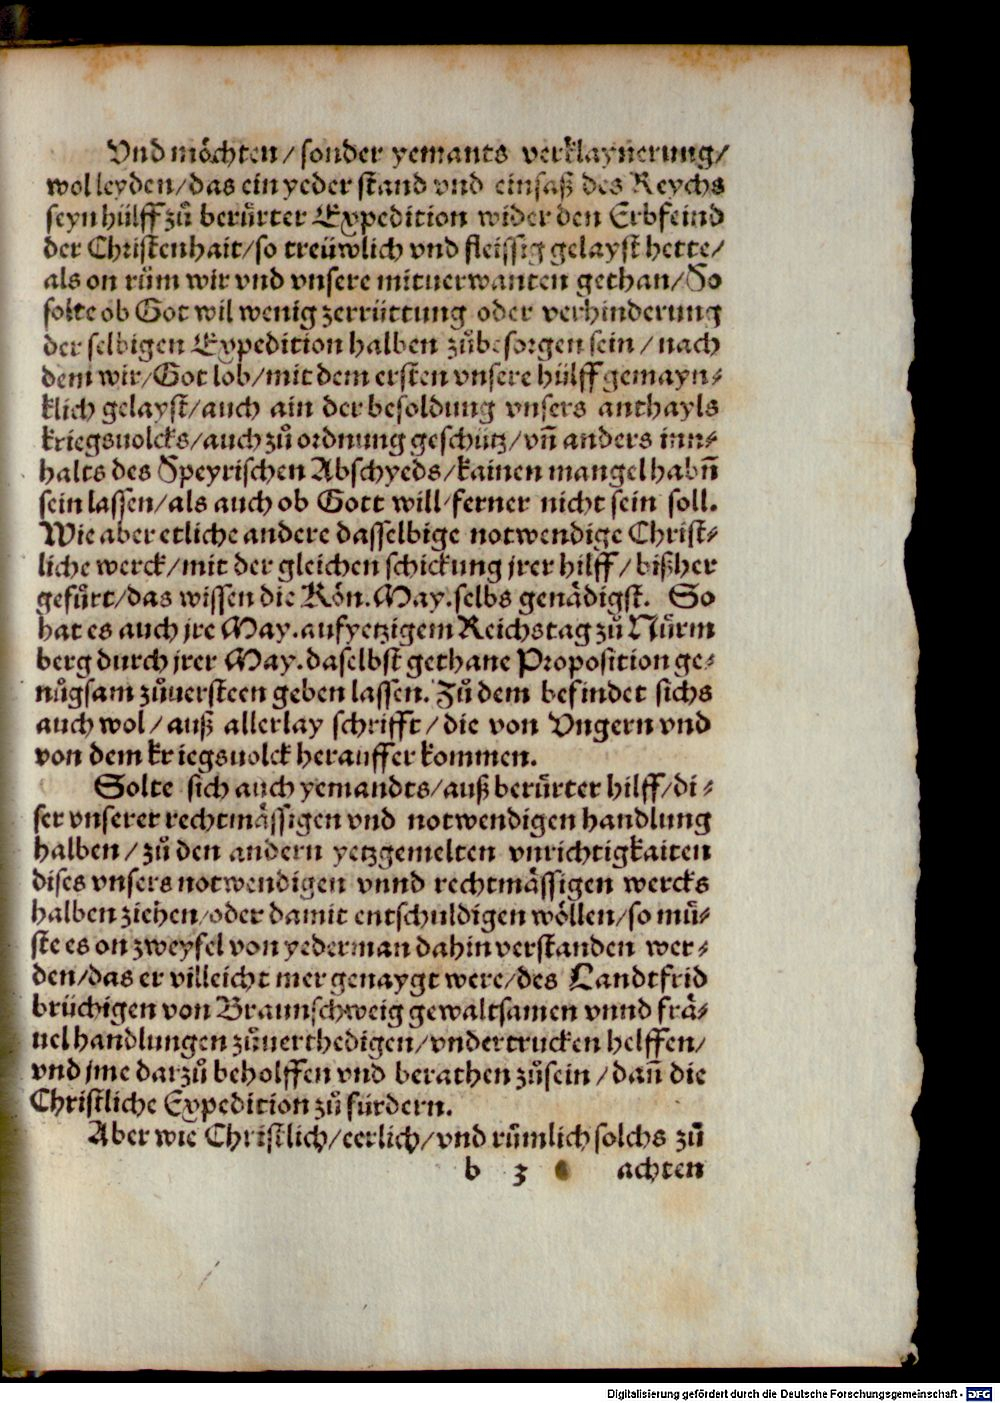 Vnd möchten/ sonder yemants verklaynerung/
wol leyden/ das ein yeder stand vnd einsaß des Reychs
seyn hülff zů berürter Expedition wider den Erbfeind
der Christenhait/ so treüwlich vnd fleissig gelayst hette/
als on rům wir vnd vnsere mituerwanten gethan/ So
solte ob Got wil wenig zerrüttung oder verhinderung
der selbigen Expedition halben zůbesorgen sein/ nach
dem wir/ Got lob/ mit dem ersten vnsere hülff gemayn-
klich gelayst/ auch ain der besoldung vnsers anthayls
kriegsuolcks/ auch zů ordnung geschütz/ vñ anders inn-
halts des Speyrischen Abschyeds/ kainen mangel habñ
sein lassen/ als auch ob Gott will/ ferner nicht sein soll.
Wie aber etliche andere dasselbige notwendige Christ-
liche werck/ mit der gleichen schickung jrer hilff/ bißher
gefürt/ das wissen die Kön. May. selbs genädigst. So
hat es auch jre May. auf yetzigem Reichstag zů Nürm
berg durch jrer May. daselbst gethane Proposition ge-
nůgsam zůuersteen geben lassen. Zů dem befindet sichs
auch wol/ auß allerlay schrifft/ die von Vngern vnd
von dem kriegsuolck herauffer kommen.
Solte sich auch yemandts/ auß berürter hilff/ di-
ser vnserer rechtmässigen vnd notwendigen handlung
halben/ zů den andern yetzgemelten vnrichtigkaiten
dises vnsers notwendigen vnnd rechtmässigen wercks
halben ziehen/ oder damit entschuldigen wöllen/ so mü-
ste es on zweyfel von yederman dahin verstanden wer-
den/ das er villeicht mer genaygt were/ des Landtfrid
brüchigen von Braunschweig gewaltsamen vnnd frä-
uel handlungen zůuerthedigen/ vndertrucken helffen/
vnd jme darzů beholffen vnd berathen zůsein/ dañ die
Christliche Expedition zů fürdern.
Aber wie Christlich/ eerlich/ vnd růmlich solchs zů
b 3 achten
Digitalisierung gefördert durch die Deutsche Forschungsgemeinschaft - DFG